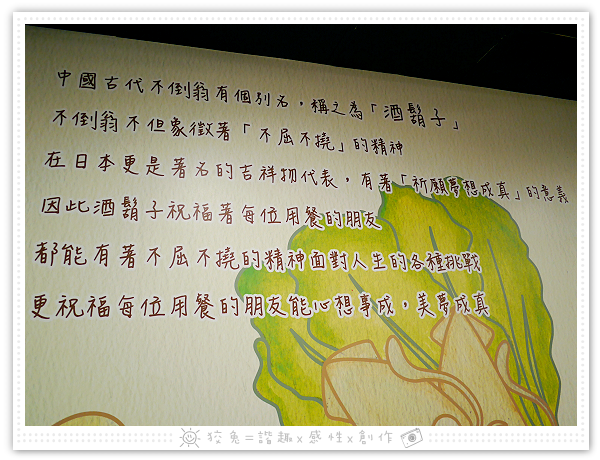 中國古代不倒翁有個別名，稱之為「酒鬍子」
不倒翁不但象徵著「不屈不撓」的精神
在日本更是著名的吉祥物代表，有著「祈願夢想成真」的意義
因此酒鬍子祝福著每位用餐的朋友
都能有著不屈不撓的精神面對人生的各種挑戰
更祝福每位用餐的朋友能心想事成，美夢成真
狡兔=諧趣x感性x創作